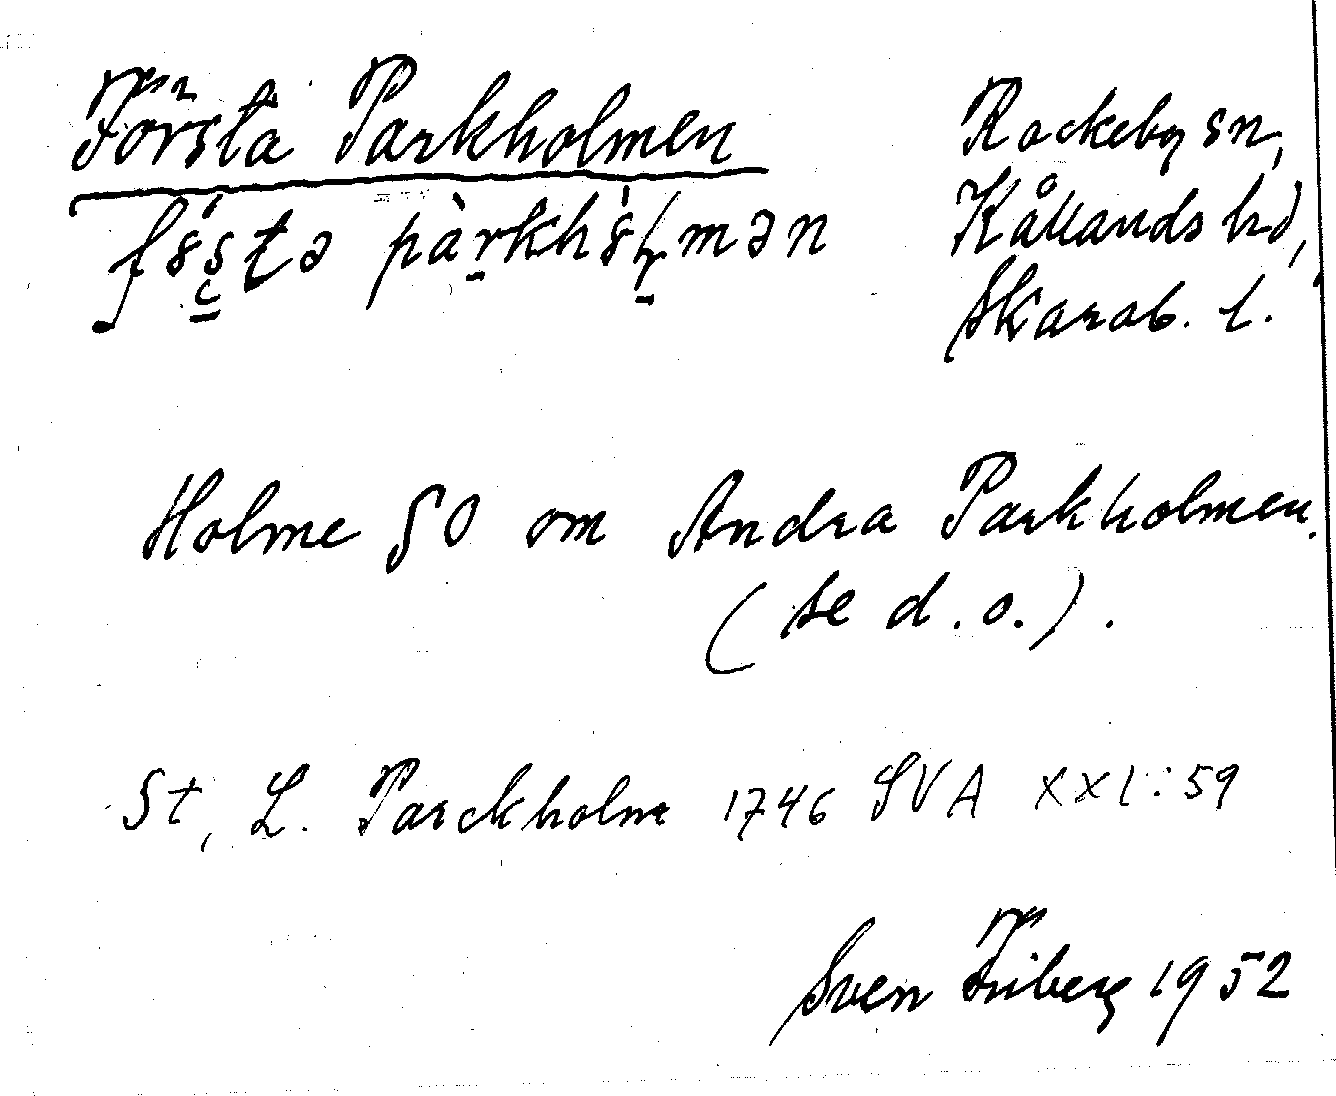 Första Parkholmen
Rackeby sn,
Kållands hd,
Skarab. l.
Holme SO om Andra Parkholmen.
(se d. o.).
St, L. Parckholm 1746 LVA XXI:59
Sven Friberg 1952